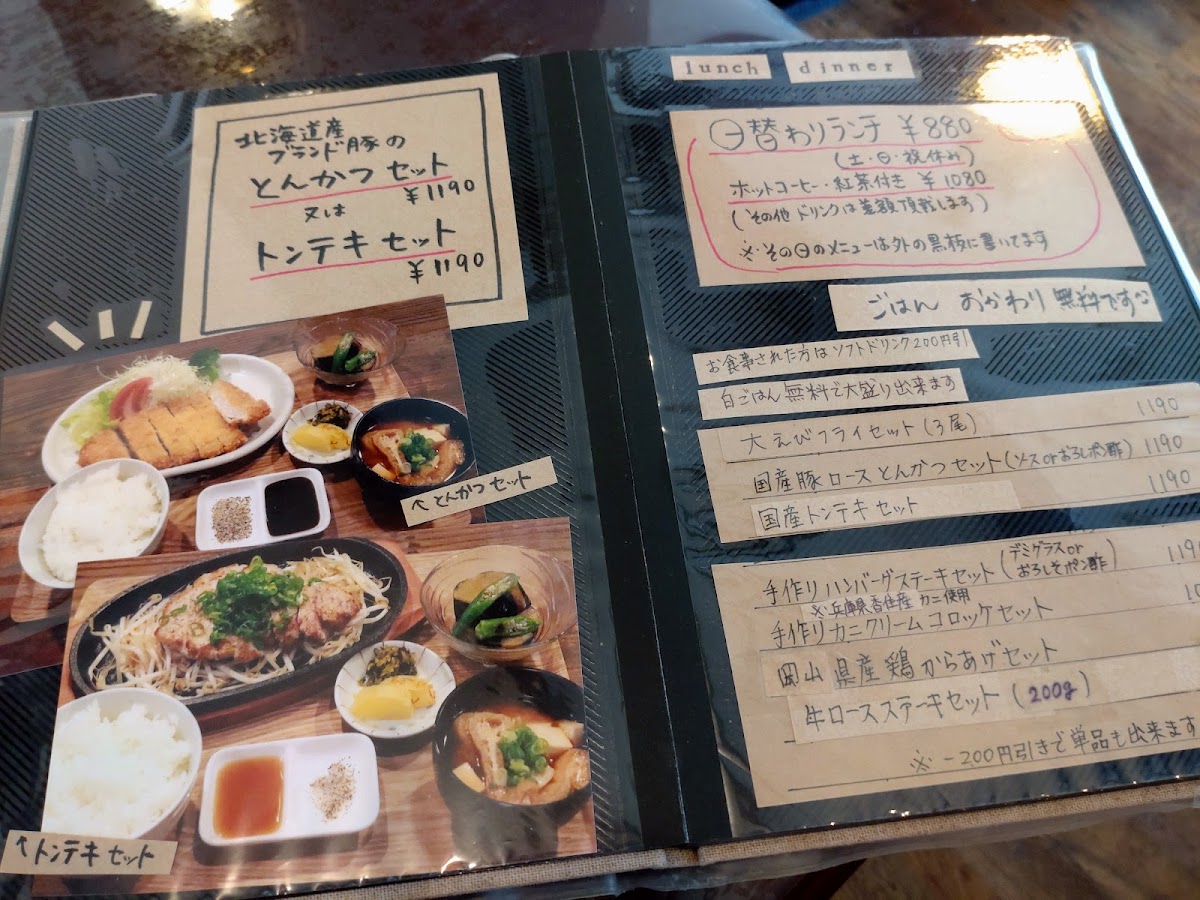 北海道産
ブランド豚の
とんかつ セット
¥1190
又は
トンテキ セット
¥1190
↖とんかつセット
↑トンテキ セット
lunch dinner
日替わりランチ ¥880
(土・日・祝休み)
ホットコーヒー・紅茶付き ¥1080
(その他 ドリンクは差額頂戴します)
※その日のメニューは外の黒板に書いてます
ごはん おかわり 無料です
お食事された方は ソフトドリンク200円引
白ごはん 無料で大盛り出来ます
大えびフライセット(3尾) 1190
国産豚ロース とんかつ セット(ソースorおろしポン酢) 1190
国産トンテキ セット 1190
手作りハンバーグステーキセット(デミグラスor おろしそポン酢)
※兵庫県香住産 カニ使用
手作りカニクリームコロッケセット
岡山県産鶏からあげセット
牛ロースステーキセット (200g)
※-200円引きで単品も出来ます